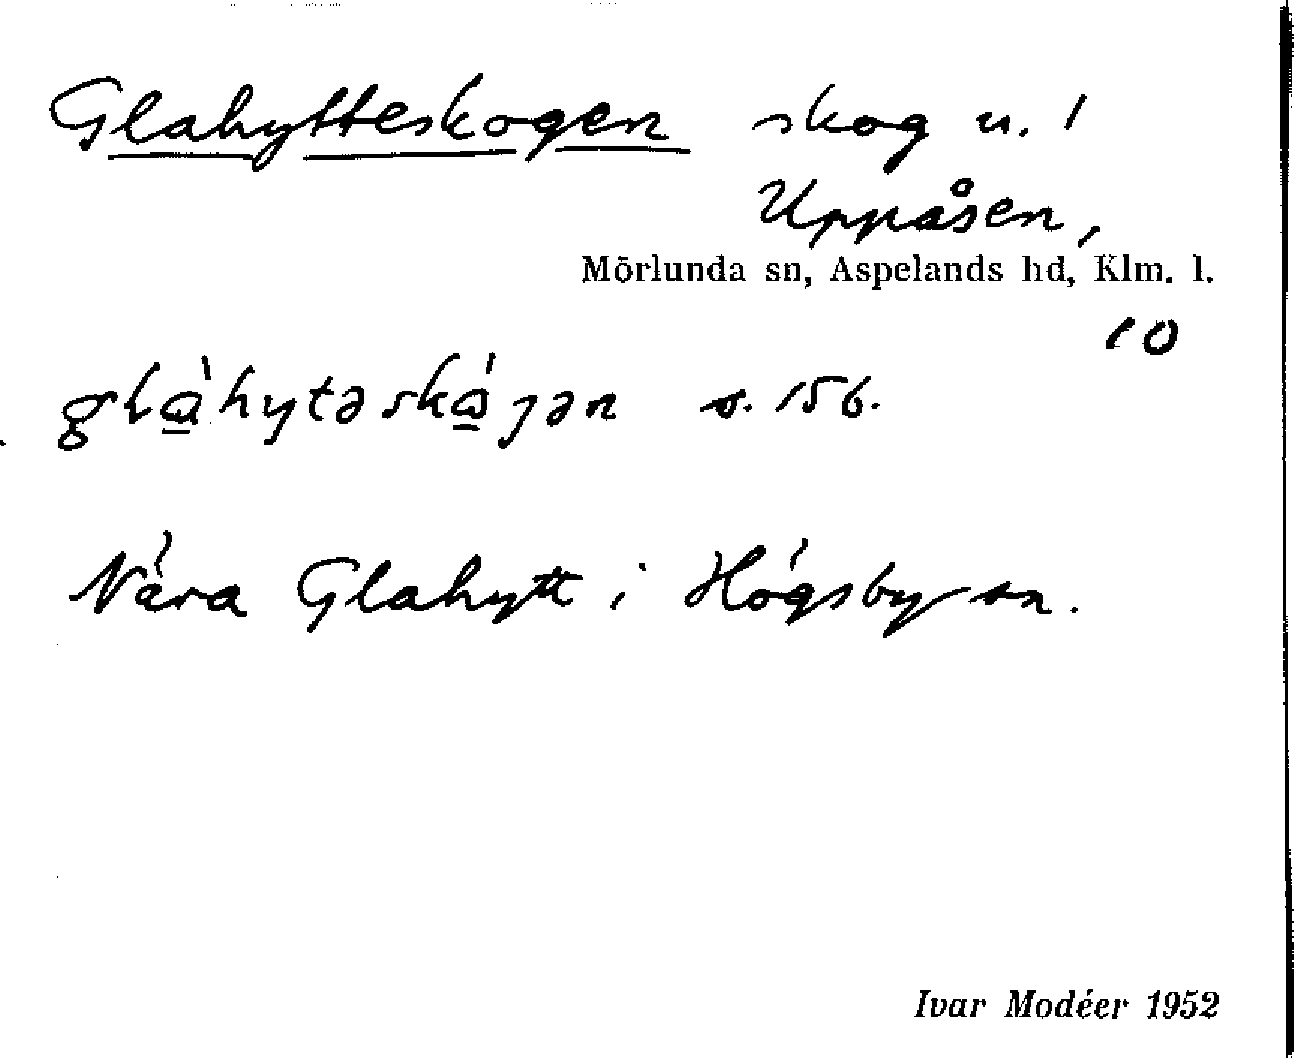 Glahytteskogen skog u. 1
Uppåsen,
Mörlunda sn, Aspelands hd, Klm. l.
10
glàhytəskáɡən s. 156.
Nära Glahytt i Högsby sn.
Ivar Modéer 1952